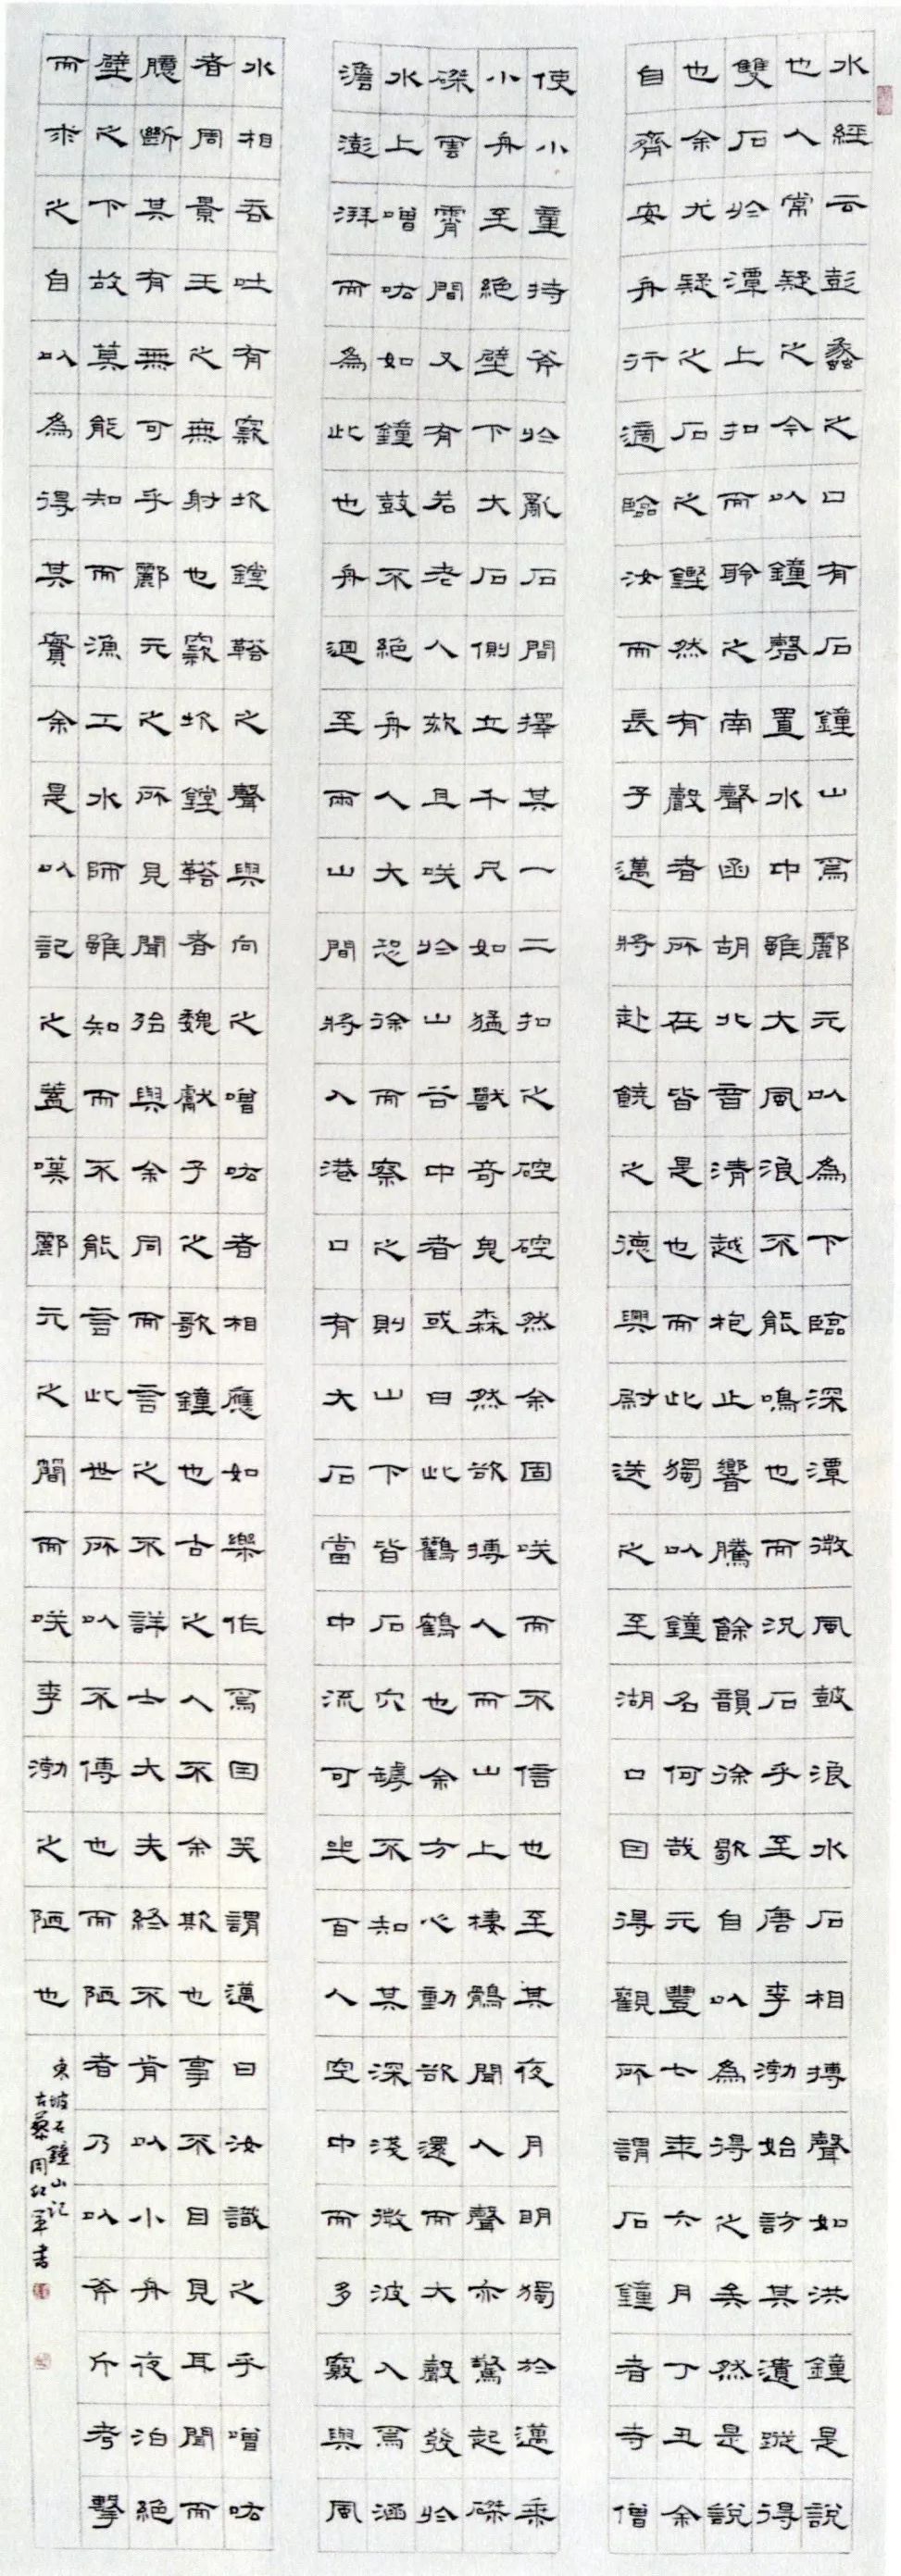 水經云彭蠡之口有石鐘山焉酈元以為下臨深潭微風鼓浪水石相搏聲如洪鐘是說
也人常疑之今以鐘磬置水中雖大風浪不能鳴也而況石乎至唐李渤始訪其遺蹤得
雙石於潭上扣而聆之南聲函胡北音清越枹止響騰餘韻徐歇自以為得之矣然是說
也余尤疑之石之鏗然有聲者所在皆是也而此獨以鐘名何哉元豐七年六月丁丑余
自齊安舟行適臨汝而長子邁將赴饒之德興尉送之至湖口因得觀所謂石鐘者寺僧
使小童持斧於亂石間擇其一二扣之硿硿然余固笑而不信也至其夜月明獨於邁乘
小舟至絕壁下大石側立千尺如猛獸奇鬼森然欲搏人而山上棲鶻聞人聲亦驚起磔
磔雲霄間又有若老人欬且笑於山谷中者或曰此鸛鶴也余方心動欲還而大聲發於
水上噌吰如鐘鼓不絕舟人大恐徐而察之則山下皆石穴罅不知其深淺微波入焉涵
澹澎湃而為此也舟迴至兩山間將入港口有大石當中流可坐百人空中而多竅與風
水相吞吐有窾坎鏜鞳之聲與向之噌吰者相應如樂作焉因笑謂邁曰汝識之乎噌吰
者周景王之無射也窾坎鏜鞳者魏獻子之歌鐘也古之人不余欺也事不目見耳聞而
臆斷其有無可乎酈元之所見聞殆與余同而言之不詳士大夫終不肯以小舟夜泊絕
壁之下故莫能知而漁工水師雖知而不能言此世所以不傳也而陋者乃以斧斤考擊
而求之自以為得其實余是以記之蓋嘆酈元之簡而笑李渤之陋也
東坡石鐘山記
古蔡周紅軍書